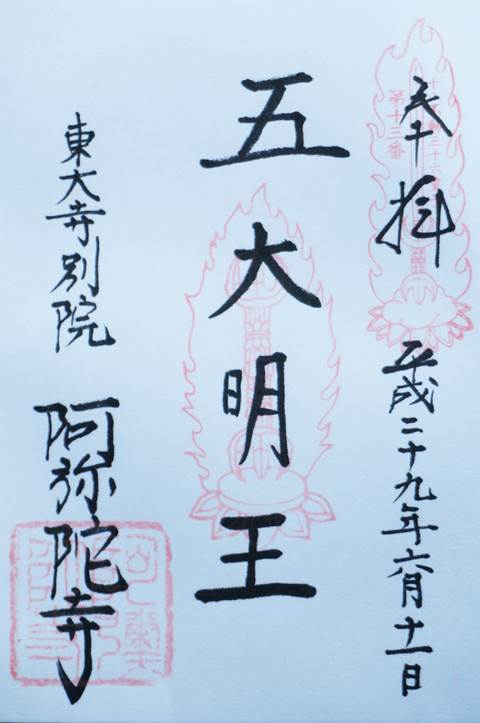 奉拝
平成二十九年六月十一日
第十三番
五大明王
東大寺別院
阿弥陀寺